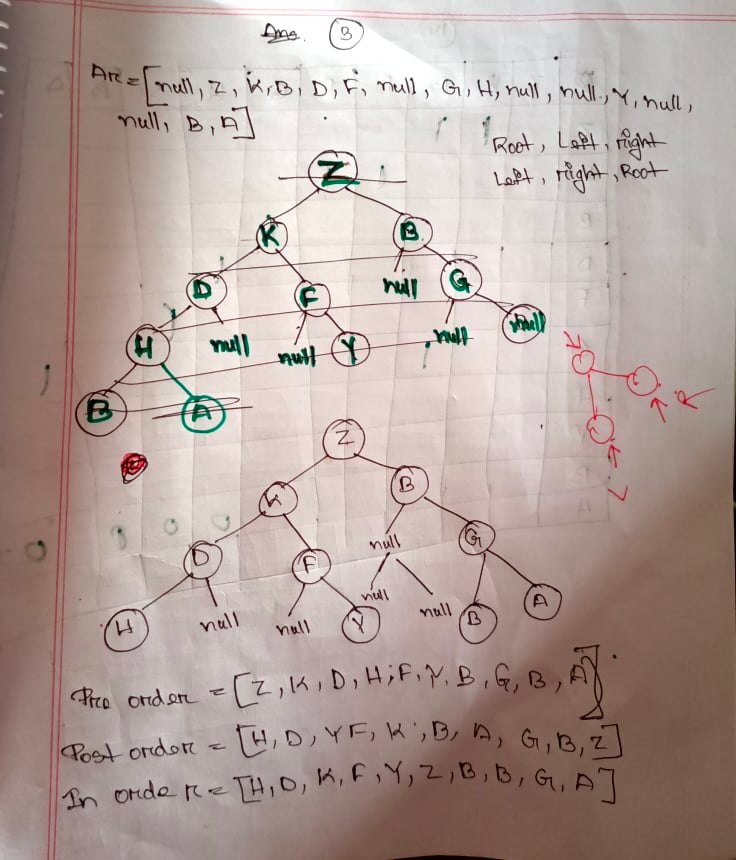 Ans. 3
Arr = [null, Z, K, B, D, F, null, G, H, null, null, Y, null,
null, B, A]
Root, Left, right
Left, right, Root
Z
K B
D F null G
H null null Y null null
B A
Z
K B
D F null G
H null null Y null null B A
L
Pre order = [Z, K, D, H, F, Y, B, G, B, A]
Post order = [H, D, Y F, K, B, A, G, B, Z]
In order = [H, D, K, F, Y, Z, B, B, G, A]